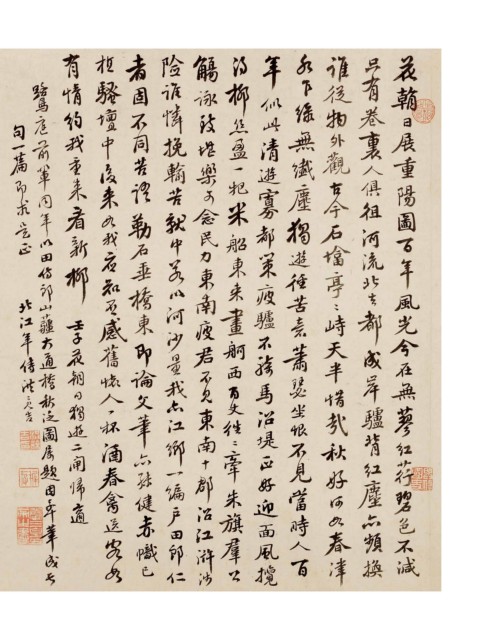 花朝日展重陽圖百年風光今在無蓼紅荇碧色不減
只有卷裏人俱徂河流北去都成岸驢背紅塵亦頻換
誰從物外觀古今石墖亭〻峙天半惜哉秋好何如春津
水下綠無纖塵獨遊徑苦意蕭瑟坐恨不見當時人百
年似此清遊寡都策疲驢不騎馬沿堤正好迎面風攬
得柳絲盈一把米船東來畫舸西百丈往〻牽朱旗羣公
觴詠致堪樂可念民力東南疲君不見東南十郡沿江滸沙
險誰憐挽輸苦就中若以河沙量我亦江鄉一編戶田郎仁
者固不同苦語勒石垂橋東即論文筆亦殊健赤幟已
拔騷壇中後來如我應知否感舊懷人一杯酒春禽送客如
有情約我重來看新柳 壬子花朝日獨遊二閘歸適
鷺庭前輩同年以田侍郎山薑大通橋秋泛圖屬題因率筆成長
句一篇即求是正 北江年侍洪亮吉